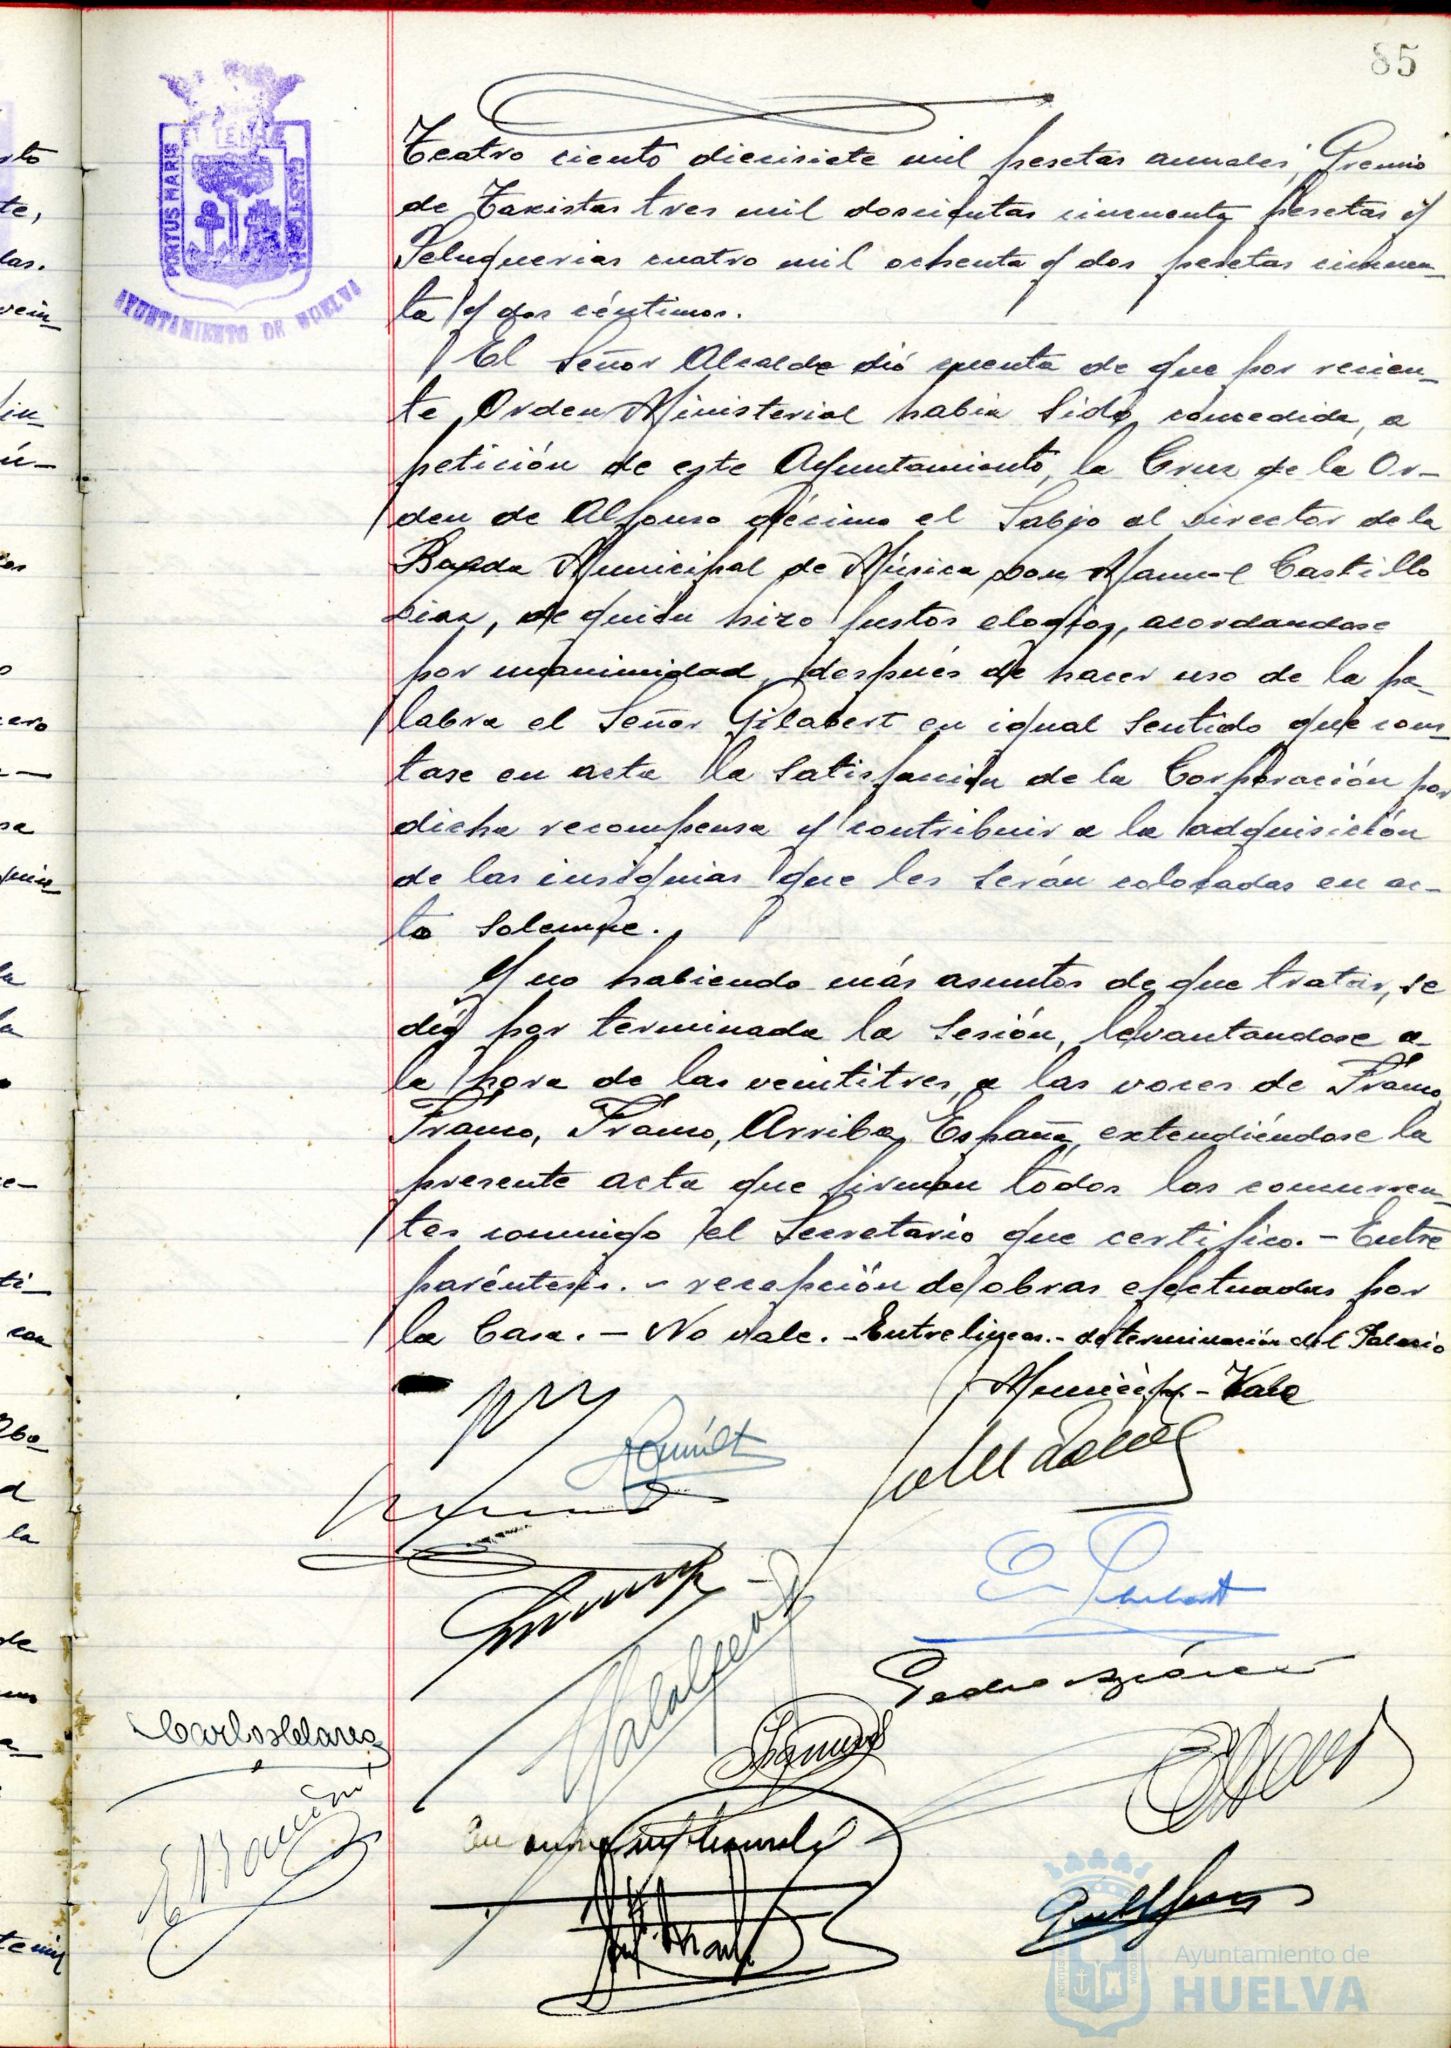 85
PORTUS MARIS
ET TERRAE
CUSTODIA
AYUNTAMIENTO DE HUELVA
Teatro ciento diecisiete mil pesetas anuales, Gremio
de Taxistas tres mil doscientas cincuenta pesetas y
Peluquerias cuatro mil ochenta y dos pesetas cincuen-
ta y dos céntimos.
El Señor Alcalde dió cuenta de que por recien-
te Orden Ministerial habia sido concedida, a
petición de este Ayuntamiento, la Cruz de la Or-
den de Alfonso décimo el Sabio al Director de la
Banda Municipal de Música Don Manuel Castillo
Diaz, de quien hizo justos elogios, acordandose
por unanimidad, después de hacer uso de la pa-
labra el Señor Gilabert en igual sentido que cons-
tase en acta la satisfacción de la Corporación por
dicha recompensa y contribuir a la adquisición
de las insignias que les serán colocadas en ac-
to solemne.
Y no habiendo más asuntos de que tratar, se
dió por terminada la sesión, levantandose a
la hora de las veintitres, a las voces de Franco,
Franco, Franco, Arriba España, extendiéndose la
presente acta que firman todos los concurren-
tes conmigo el Secretario que certifico. - Entre
paréntesis. - recepción de obras efectuadas por
la Casa. - No vale. - Entrelineas. - determinación del Palacio
Municipal - Vale
Pedro
Carlos
Ayuntamiento de
HUELVA